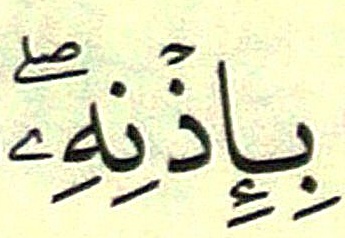 بِإِذۡنِهِۦۖ